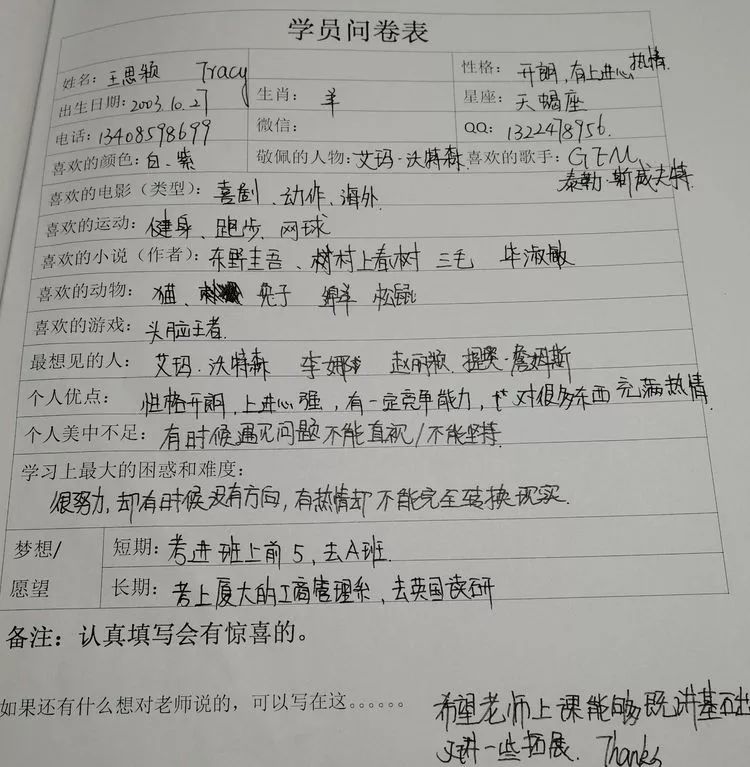 学员问卷表
姓名：王思颖 Tracy 性格：开朗，有上进心 热情
出生日期：2003.10.27 生肖：羊 星座：天蝎座
电话：13408598699 微信： QQ：1322478956.
喜欢的颜色：白、紫 敬佩的人物：艾玛·沃特森 喜欢的歌手：G.E.M.
泰勒·斯威夫特
喜欢的电影（类型）：喜剧、动作、海外
喜欢的运动：健身、跑步、网球
喜欢的小说（作者）：东野圭吾、树村上春树 三毛 毕淑敏
喜欢的动物：猫、兔子 绵羊 松鼠
喜欢的游戏：头脑王者.
最想见的人：艾玛·沃特森 李娜 赵丽颖 提莫·詹姆斯
个人优点：性格开朗，上进心强，有一定竞争能力，对很多东西充满热情.
个人美中不足：有时候遇见问题不能直视/不能坚持.
学习上最大的困惑和难度：
很努力，却有时候没有方向，有热情却不能完全转换现实.
梦想/ 短期：考进班上前5，去A班.
愿望 长期：考上厦大的工商管理系，去英国读研
备注：认真填写会有惊喜的。
如果还有什么想对老师说的，可以写在这…… 希望老师上课能够既讲基础
又讲一些拓展. Thanks